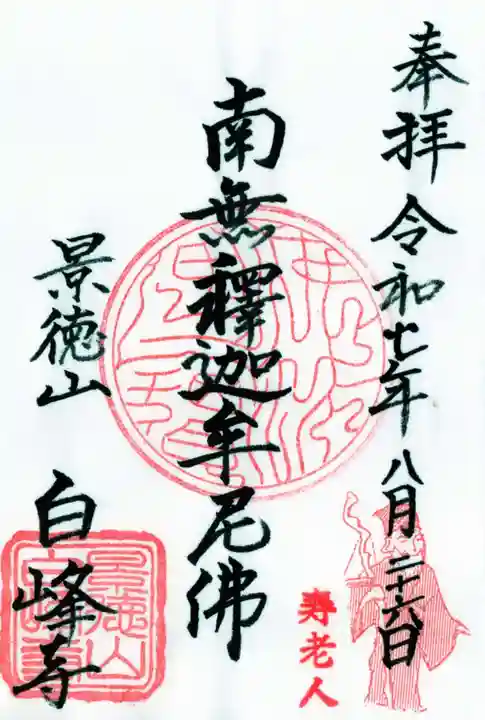 奉拝 令和七年八月二十六日
寿老人
南無釋迦牟尼佛
景徳山
白峰寺